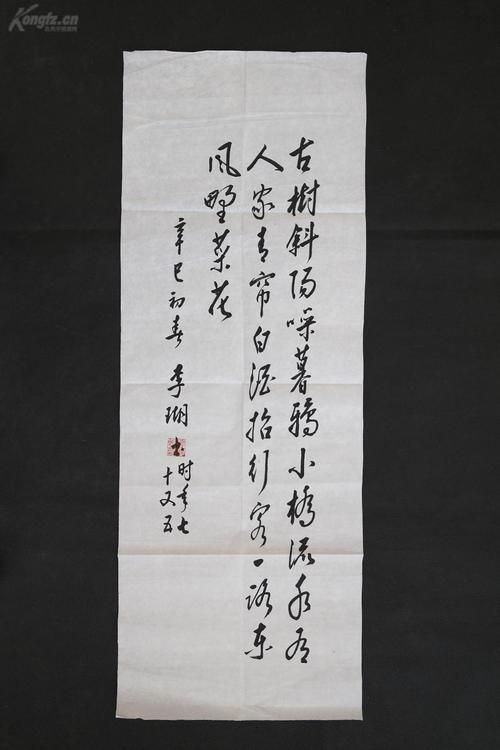 Kongfz.cn
古樹斜陽噪暮鴉小橋流水有
人家青帘白酒招行客一路東
風野菜花
辛巳初春 李瑚
时年七
十又五